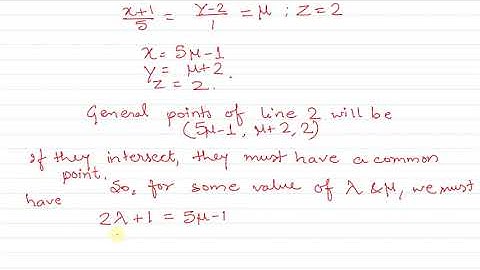 x+1/5 = y-2/1 = μ ; z=2
x = 5μ-1
y = μ+2.
z = 2.
General points of line 2 will be
(5μ-1, μ+2, 2)
If they intersect, they must have a common
point.
So, for some value of λ & μ, we must
have
2λ+1 = 5μ-1